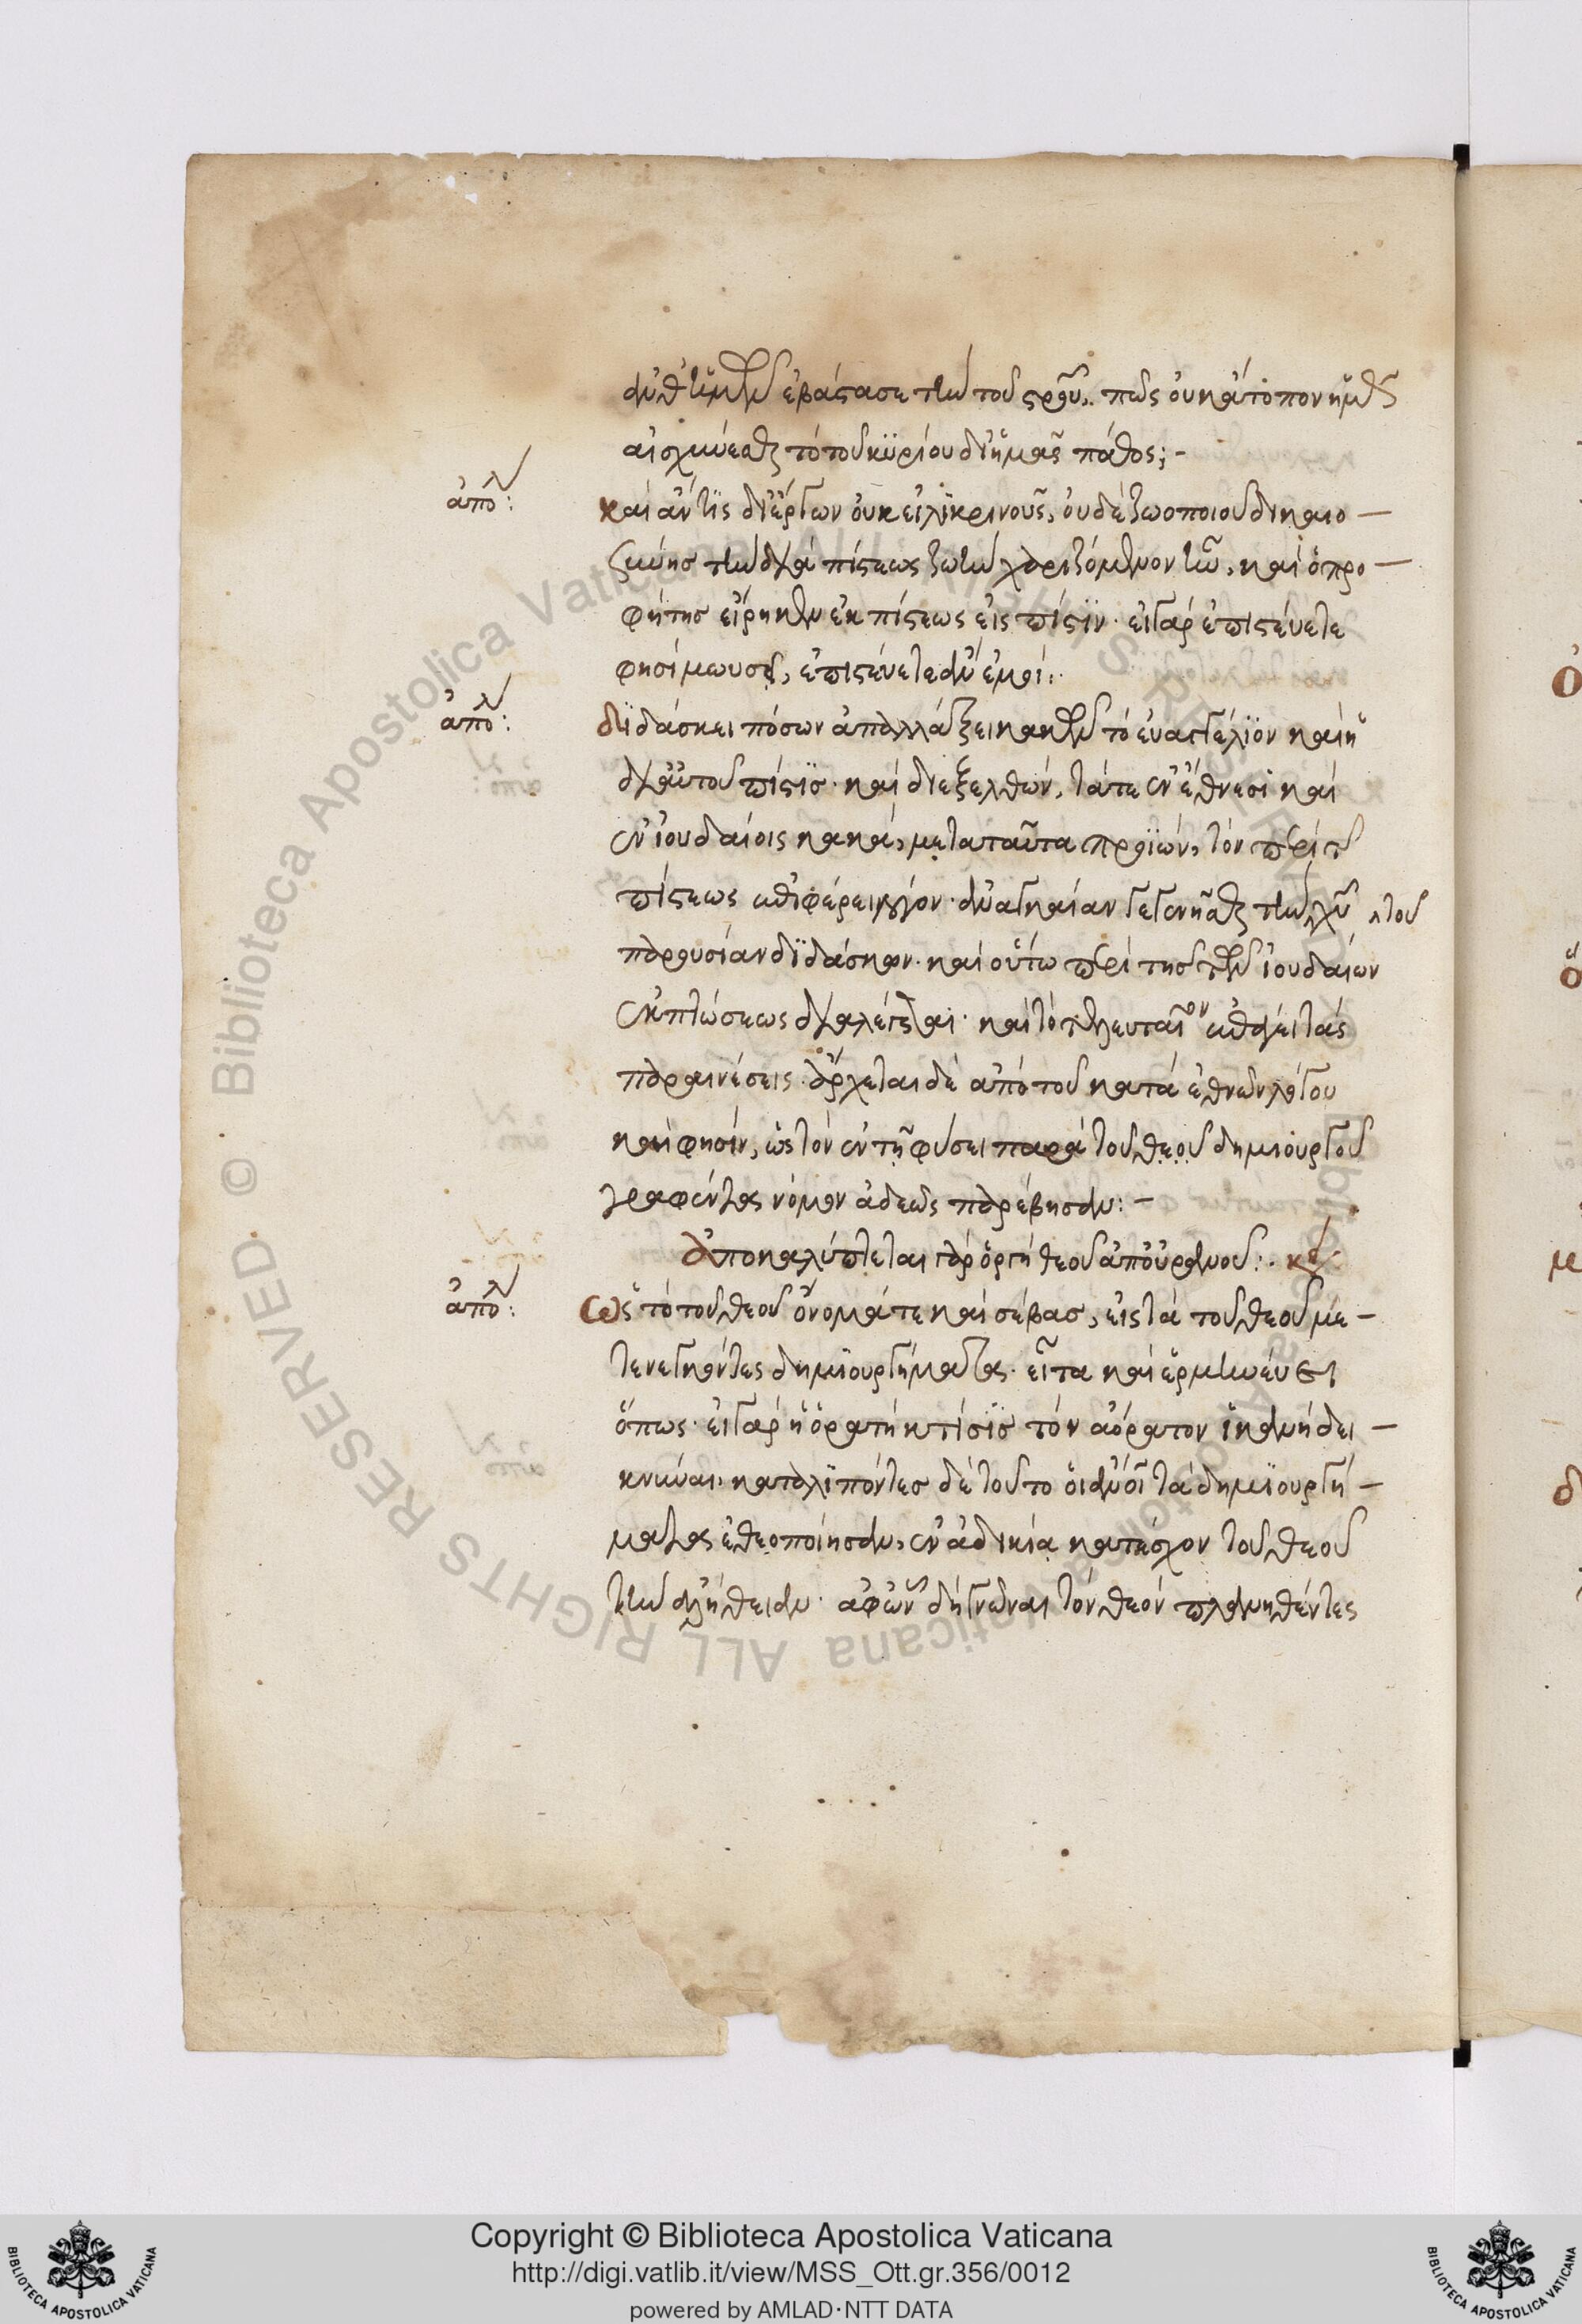 ἀνθ' ἡμῶν ἐβάστασε τὴν τοῦ σταυροῦ, πῶς οὐκ ἄτοπον ἡμᾶς
αἰσχύνεσθαι τὸ τοῦ κυρίου δι' ἡμᾶς πάθος; -
ἀπολ:
καὶ ἄν τις δι' ἔργων οὐκ εἰλικρινοῦς, οὐδὲ ζωοποιοῦ δικαιο -
σύνης τὴν διὰ πίστεως ζωὴν χαριζόμενον καὶ ὁ προ -
φήτης εἴρηκεν ἐκ πίστεως εἰς πίστιν· εἰ γὰρ ἐπιστεύετε
φησὶ μωυσῇ, ἐπιστεύετε ἂν ἐμοί:
ἀπολ:
διδάσκει πόσων ἀπαλλάξει κακῶν τὸ εὐαγγέλιον καὶ ἡ
δι' αὐτοῦ πίστις· καὶ διεξελθὼν, τά τε ἐν ἔθνεσι καὶ
ἐν ἰουδαίοις κακά, μετὰ ταῦτα προϊὼν, τὸν περὶ τῆς
πίστεως ἐπιφέρει λόγον· ἀναγκαίαν γεγενῆσθαι τὴν χριστοῦ τοῦ
παρουσίαν διδάσκων· καὶ οὕτω περὶ τῆς τῶν ἰουδαίων
ἐκπτώσεως διαλέγεται· καὶ τὸ τελευταῖον ἐπάγει τὰς
παραινέσεις· ἄρχεται δὲ ἀπὸ τοῦ κατὰ ἐθνῶν λόγου
καὶ φησίν, ὡς τὸν ἐν τῇ φύσει παρὰ τοῦ θεοῦ δημιουργοῦ
γραφέντα νόμον ἀδεῶς παρέβησαν: -
Ἀποκαλύπτεται γὰρ ὀργὴ θεοῦ ἀπ' οὐρανοῦ: κεί
ἀπολ:
Ὡς τὸ τοῦ θεοῦ ὄνομά τε καὶ σέβας, εἰς τὰ τοῦ θεοῦ με -
τενεγκόντες δημιουργήματα· εἶτα καὶ ἑρμηνεύει
ὅπως· εἰ γὰρ ἡ ὁρατὴ κτίσις τὸν ἀόρατον ἱκανὴ δει -
κνύναι· καταλιπόντες δὲ τοῦτο οἱ ἄνθρωποι τὰ δημιουργή -
ματα ἐθεοποίησαν, ἐν ἀδικίᾳ κατέσχον τοῦ θεοῦ
τὴν ἀλήθειαν· ἀφ' ὧν δὴ γνῶναι τὸν θεὸν πλανηθέντες
Copyright © Biblioteca Apostolica Vaticana
http://digi.vatlib.it/view/MSS_Ott.gr.356/0012
powered by AMLAD·NTT DATA